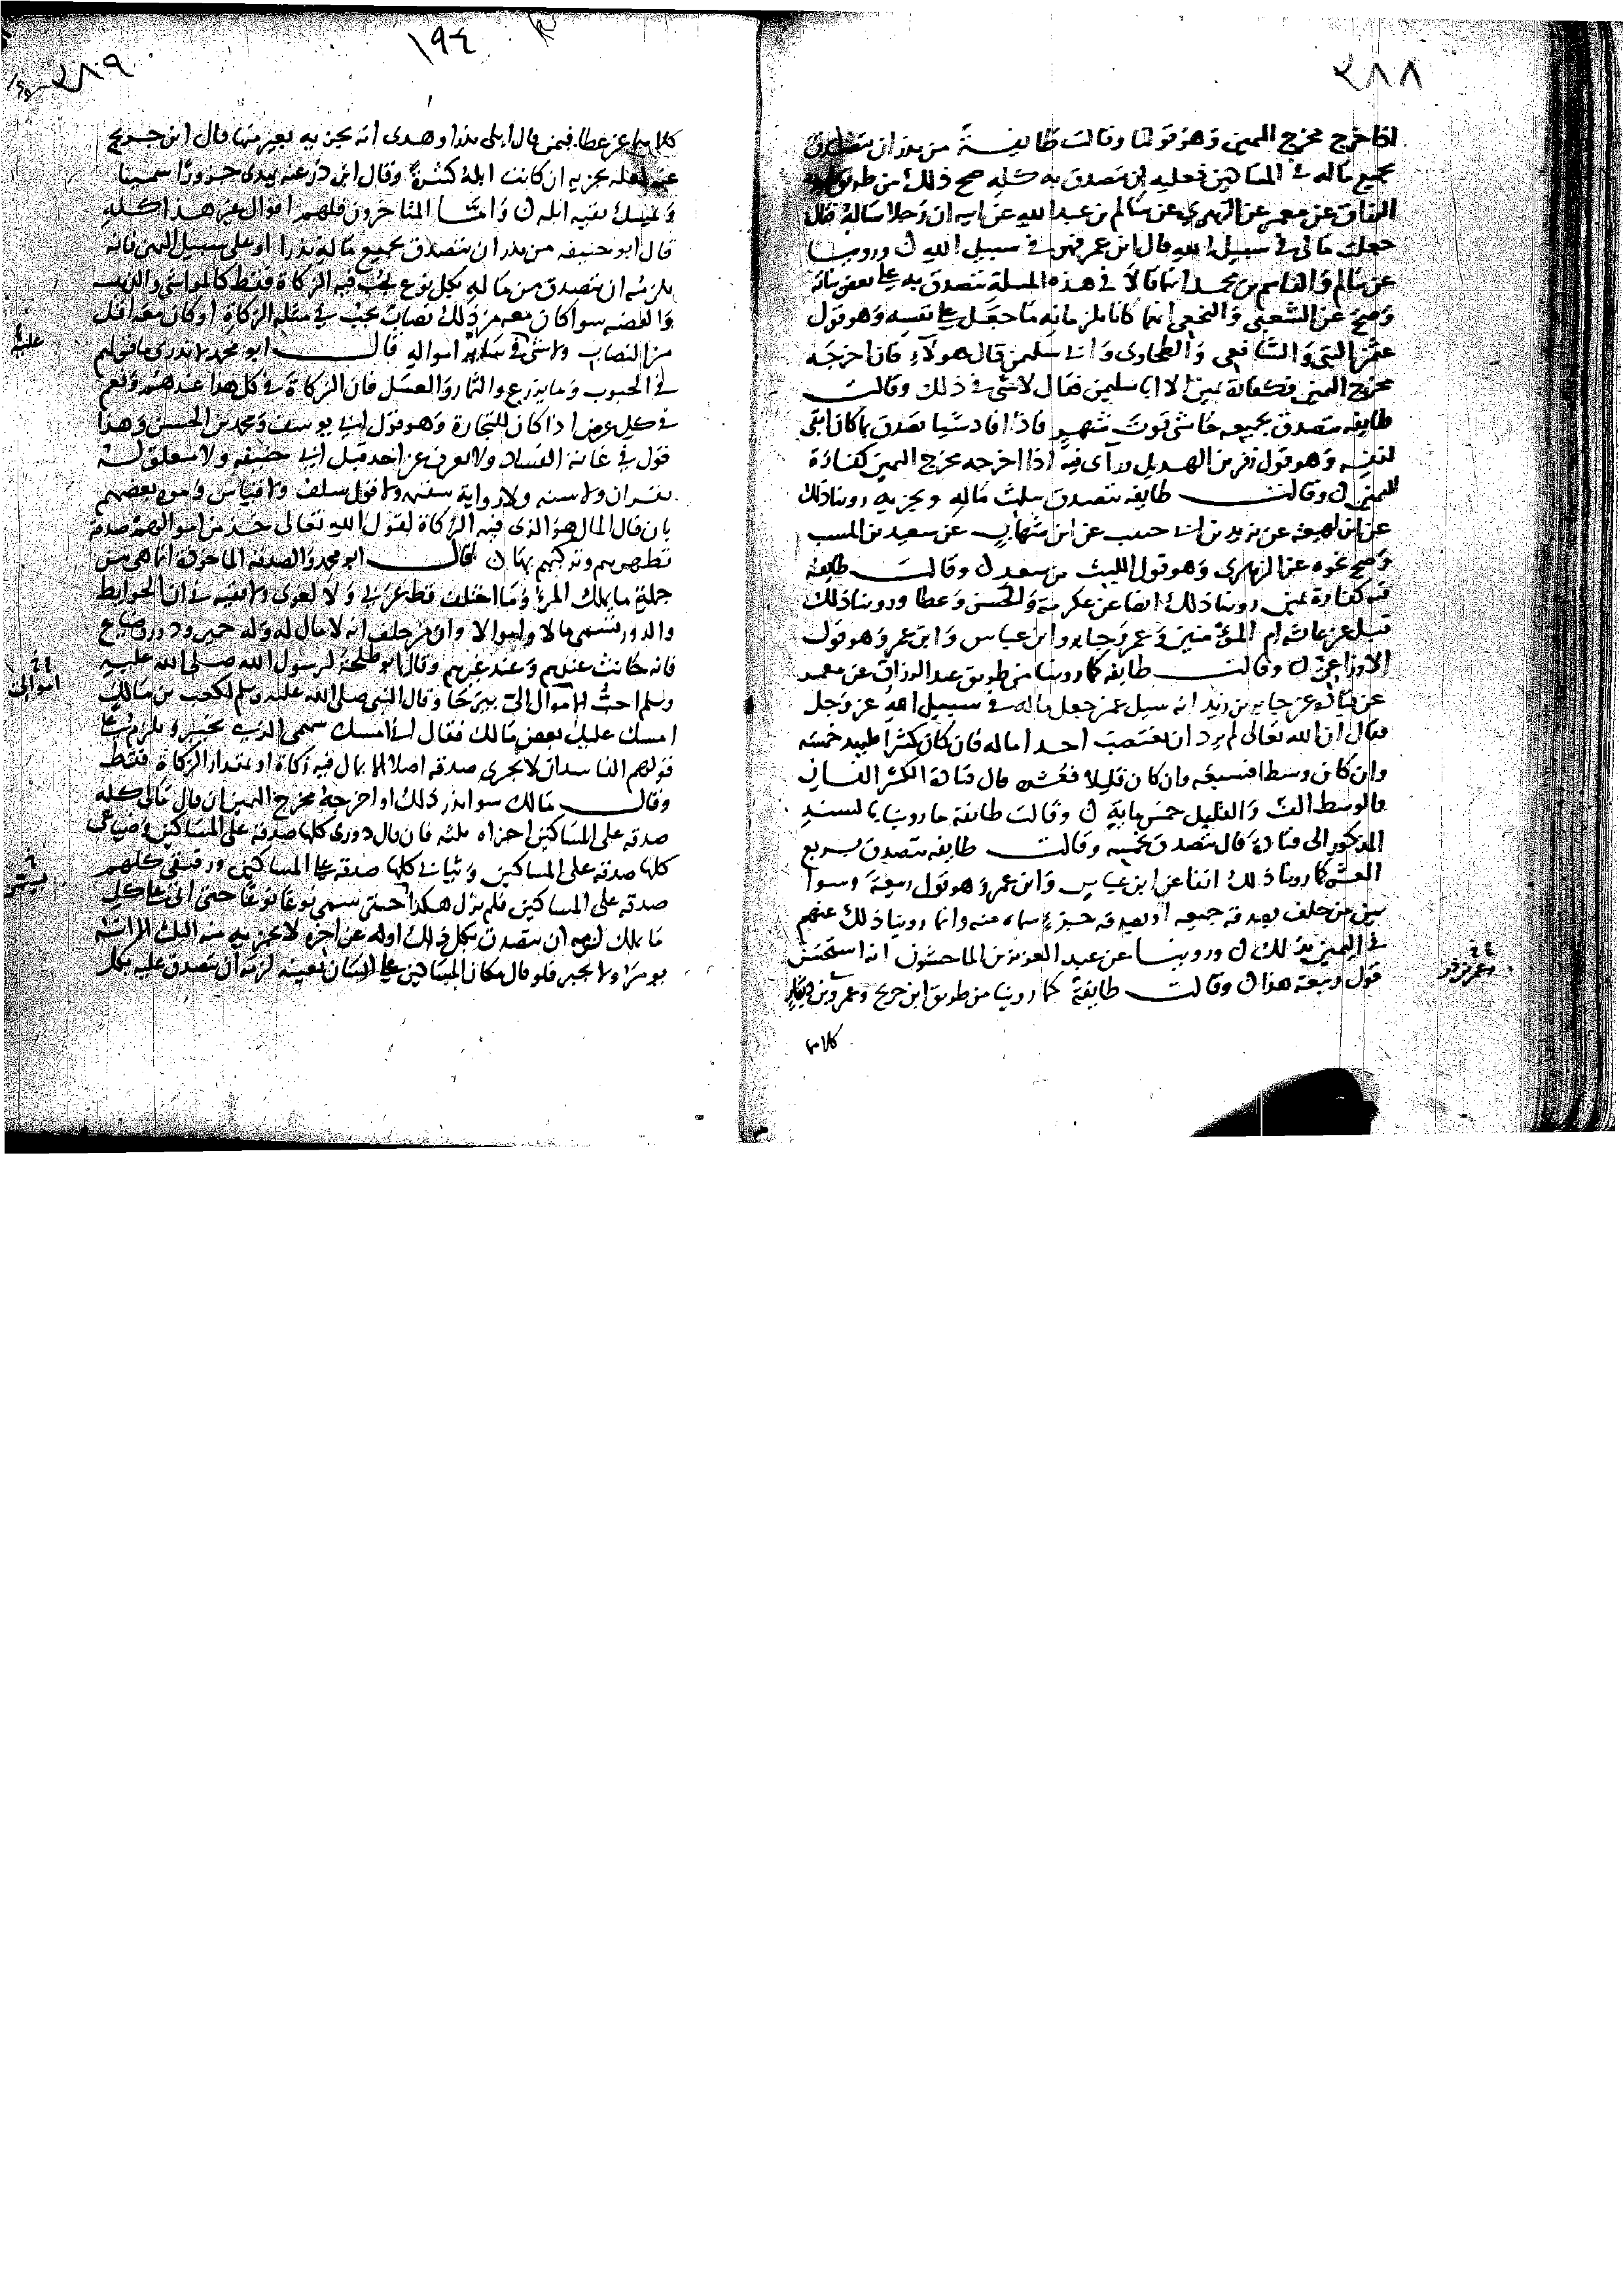 ٢٨٨
اذا خرج مخرج اليمين وهو قولنا وقالت طايفة من نذر ان يتصدق
بجميع ماله في المساكين فعليه ان يتصدق به كله صح ذلك من طريق عبد
الرزاق عن معمر عن الزهري عن سالم بن عبد الله عن ابيه ان رجلا ساله فقال
جعلت مالي في سبيل الله قال ابن عمر فهو في سبيل الله ن وروينا
عن سالم والقاسم بن محمد انهما قالا في هذه المسلة يتصدق به على بعض بناته
وصح عن الشعبي والنخعي انهما كانا يلزمانه ما جعل على نفسه وهو قول
عثمن البتي والشافعي والطحاوي وابي سليمن قال هولاء فان اخرجه
مخرج اليمين فكفارة يمين الا ابا سليمن فقال لا شي في ذلك وقالت
طايفة يتصدق بجميعه حاشى قوت شهر فاذا افاد شيا تصدق بما كان ابقى
لنفسه وهو قول زفر بن الهديل وراى فيه اذا اخرجه مخرج اليمين كفارة
اليمين ن وقالت طايفه يتصدق بثلث ماله ويجزيه روينا ذلك
عن ابن لهيعة عن يزيد بن ابي حبيب عن ابن شهاب عن سعيد بن المسيب
وصح نحوه عن الزهري وهو قول الليث بن سعد ن وقالت طايفه
فيه كفارة يمين روينا ذلك ايضا عن عكرمة والحسن وعطا وروينا ذلك
قبل عن عايشه ام المؤمنين وعمر وجابر وابن عباس وابن عمر وهو قول
الاوزاعي ن وقالت طايفه كما روينا من طريق عبد الرزاق عن معمر
عن قتادة عن جابر بن زيد انه سيل عمن جعل ماله في سبيل الله عز وجل
فقال ان الله تعالى لم يرد ان تغتصب احدا ماله فان كان كثيرا فليهد خمسه
وان كان وسطا فسبعه وان كان قليلا فعشره قال قتادة الكثير الفان
والوسط الف والقليل خمس ماية ن وقالت طايفة ما روينا بالسند
المذكور الى قتادة قال يتصدق بخمسه وقالت طايفه يتصدق بربع
العشر كما روينا ذلك انفا عن ابن عباس وابن عمر وهو قول ربيعة وسوا
بين من حلف بصدقة جميعه او بصدقة جزء سماه منه وانما روينا ذلك عنهم
في اليمين بذلك ن وروينا عن عبد العزيز بن الماجشون انه استحسن
قول ربيعة هذا ن وقالت طايفة كما روينا من طريق ابن جريج وعمرو بن دينار
كلاهما
١٩٤
٢٨٩
كلاهما عن عطا فيمن قال ابلي نذر او هدي انه يجزيه بعير منها قال ابن جريج
عنه لعله يجزيه ان كانت ابله كثيرة وقال ابن ذر عنه يهدي جزورا سمينا
ويمسك بقيه ابله ن واما المتاخرون فلهم اقوال غير هذا كله
قال ابو حنيفه من نذر ان يتصدق بجميع ماله نذرا او على سبيل اليمين فانه
يلزمه ان يتصدق من ماله بكل نوع تجب فيه الزكاة فقط كالمواشي والذهب
والفضه سوا كان معه من ذلك نصاب تجب في مثله الزكاة او كان معه اقل
من النصاب ولا شي في ساير امواله قال ابو محمد لا ندري ما قولهم
في الحبوب وما يزرع والثمار والعسل فان الزكاة في كل هذا عندهم نعم
في كل عرض اذا كان للتجارة وهو قول ابي يوسف ومحمد بن الحسن وهذا
قول في غاية الفساد ولا يعرف عن احد قبل ابي حنيفه ولا متعلق له
بقران ولا سنه ولا رواية سقيمه ولا قول سلف ولا قياس وموه بعضهم
بان قال المال هو الذي فيه الزكاة لقول الله تعالى خذ من اموالهم صدقة
تطهرهم وتزكيهم بها ن قال ابو محمد والصدقه الماخوذة انما هي من
جملة ما يملك المرء وما اختلف قط عربي ولا لغوي ولا فقيه في ان الحوايط
والدور تسمى مالا واموالا وان من حلف انه لا مال له وله حمير ودور وضياع
فانه حانث عندهم وعند غيرهم وقال ابو طلحة لرسول الله صلى الله عليه
وسلم احب الاموال الي بيرحا وقال النبي صلى الله عليه وسلم لكعب بن مالك
امسك عليك بعض مالك فقال اني امسك سهمي الذي بخيبر ويلزم على
قولهم الفاسد ان لا يجزي صدقه اصلا الا بمال فيه زكاة او بمقدار الزكاة فقط
وقال مالك سوا نذر ذلك او اخرجه مخرج اليمين ان قال مالي كله
صدقه على المساكين اجزاه ثلثه فان قال دوري كلها صدقه على المساكين وضياعي
كلها صدقه على المساكين وثيابي كلها صدقه على المساكين ورقيقي كلهم
صدقه على المساكين فلم يزل هكذا حتى سمى نوعا نوعا حتى اتى على كل
ما يملك لزمه ان يتصدق بكل ذلك اوله عن اخره لا يجزيه منه الثلث الا انه
يومر ولا يجبر فلو قال مكان المساكين على انسان بعينه لزمه ان يتصدق عليه بكل